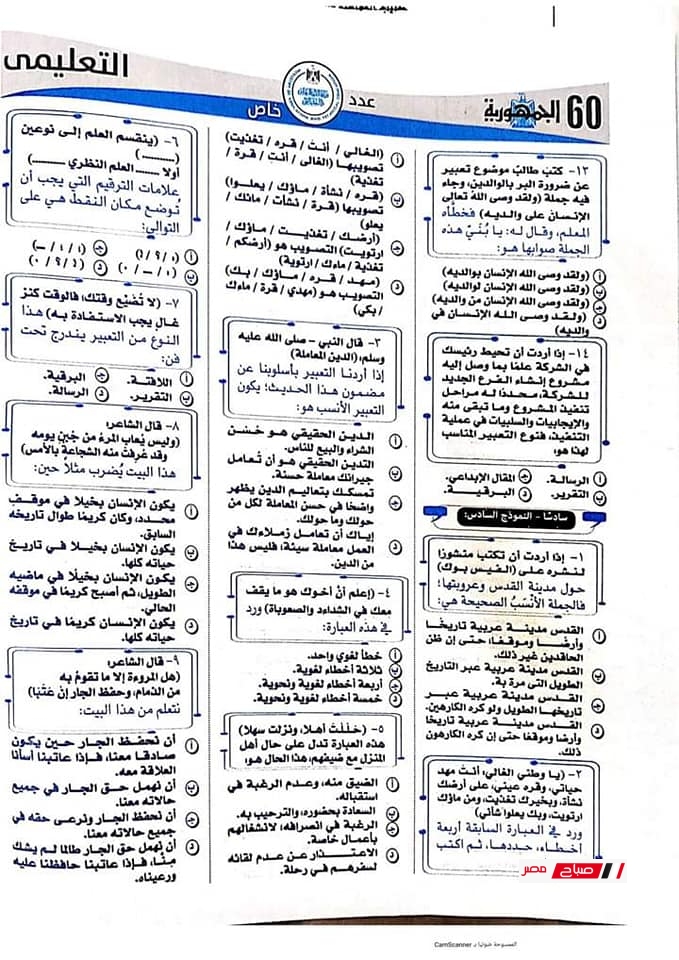 60 الجمهورية
عدد
خاص
التعليمى
١٣- كتب طالب موضوع تعبير
عن ضرورة البر بالوالدين، وجاء
فيه جملة (ولقد وصى الله تعالى
الإنسان على والديه) فخطأه
المعلم، وقال له: يا بُنَيّ هذه
الجملة صوابها هو:
أ (ولقد وصى الله الإنسان بوالديه)
ب (ولقد وصى الله الإنسان لوالديه)
ج (ولقد وصى الله الإنسان من والديه)
د (ولقد وصى الله الإنسان في
والديه)
١٤- إذا أردت أن تحيط رئيسك
في الشركة علمًا بما وصل إليه
مشروع إنشاء الفرع الجديد
للشركة، محددًا له مراحل
تنفيذ المشروع وما تبقى منه
والإيجابيات والسلبيات في عملية
التنفيذ، فنوع التعبير المناسب
لهذا هو،
أ الرسالة. ج المقال الإبداعي.
ب التقرير. د البرقية.
سادسًا - النموذج السادس:
١- إذا أردت أن تكتب منشورًا
لنشره على (الفيس بوك)
حول مدينة القدس وعروبتها؛
فالجملة الأنْسَبُ الصحيحة هي:
أ القدس مدينة عربية تاريخًا
وأرضًا وموقفًا، حتى إن ظن
الحاقدين غير ذلك.
ب القدس مدينة عربية عبر التاريخ
الطويل التى مرة بة.
ج القدس مدينة عربية عبر
تاريخها الطويل ولو كره الكارهين.
د القدس مدينة عربية تاريخًا
وأرضًا وموقفًا حتى إن كره الكارهون
ذلك.
٢- (يا وطني الغالي، أنت مهد
حياتي، وقره عيني، على أرضك
نشأة، وبخيرك تغذيت، ومن ماؤك
ارتويت، وبك يعلوا شأني)
ورد في العبارة السابقة أربعة
أخطاء، حددها، ثم اكتب
أ (الغالي / أنت / قره / تغذيت)
تصويبها (الغالى / أنتِ / قرة /
تغذية)
ب (قره / نشأة / ماؤك / يعلوا)
تصويبها (قرة / نشأت / مائك /
يعلو)
ج (أرضك / تغذيت / ماؤك /
ارتويت) التصويب هو (أرضكم /
تغذية / ماءك / ارتوية)
د (مهد / قره / ماؤك / بك)
التصويب هو (مهدي / قرة / ماءك
/ بكي)
٣- قال النبي - صلى الله عليه
وسلم: (الدين المعاملة)
إذا أردنا التعبير بأسلوبنا عن
مضمون هذا الحديث؛ يكون
التعبير الأنسب هو:
أ الدين الحقيقي هو حُسْن
الشراء والبيع للناس.
ب التدين الحقيقي هو أن تُعامل
جيرانك معاملة حسنة.
ج تمسكك بتعاليم الدين يظهر
واضحًا في حسن المعاملة لكل من
حولك وما حولك.
د إياك أن تعامل زملاءك في
العمل معاملة سيئة، فليس هذا
من الدين.
٤- (إعلم أنَّ أخوك هو ما يقف
معك في الشداءد والصعوباة) ورد
في هذه العبارة:
أ خطأ لغوي واحد.
ب ثلاثة أخطاء لغوية.
ج أربعة أخطاء لغوية ونحوية.
د خمسة أخطاء لغوية ونحوية.
٥- (حَلَلْتَ أهلا، ونزلت سهلا)
هذه العبارة تدل على حال أهل
المنزل مع ضيفهم، هذا الحال هو،
أ الضيق منه، وعدم الرغبة في
استقباله.
ب السعادة بحضوره، والترحيب به.
ج الرغبة في انصرافه، لانشغالهم
بأعمال خاصة.
د الاعتذار عن عدم لقائه
لسفرهم في رحلة.
٦- (ينقسم العلم إلى نوعين
(..........)
أولا ...... العلم النظري ..........)
علامات الترقيم التي يجب أن
تُوضع مكان النقط هي على
التوالي:
٧- (لا تُضَيِّع وقتك؛ فالوقت كنز
غالٍ يجب الاستفادة به) هذا
النوع من التعبير يندرج تحت
فن:
أ اللافتة. ج البرقية.
ب التقرير. د الرسالة.
٨- قال الشاعر:
(وليس يُعاب المرءُ من جُبْنِ يومه
وقد عَرفتْ منه الشجاعة بالأمس)
هذا البيت يُضرب مثلًا حين:
أ يكون الإنسان بخيلًا في موقف
محدد، وكان كريمًا طوال تاريخه
السابق.
ب يكون الإنسان بخيلًا في تاريخ
حياته كلها.
ج يكون الإنسان بخيلًا في ماضيه
الطويل، ثم أصبح كريمًا في موقفه
الحالي.
د يكون الإنسان كريمًا في تاريخ
حياته كلها.
٩- قال الشاعر:
(هل المروءة إلا ما تقومُ به
من الذمام، وحفظ الجار إنْ عَتَبَا)
نتعلم من هذا البيت:
أ أن نحفظ الجار حين يكون
صادقًا معنا، فإذا عاتبنا أسأنا
العلاقة معه.
ب أن نهمل حق الجار في جميع
حالاته معنا.
ج أن نحفظ الجار ونرعى حقه في
جميع حالاته معنا.
د أن نهمل حق الجار طالما لم يشك
منَّا، فإذا عاتبنا حافظنا عليه
ورعيناه.
صباح مصر
الممسوحة ضوئيا بـ CamScanner